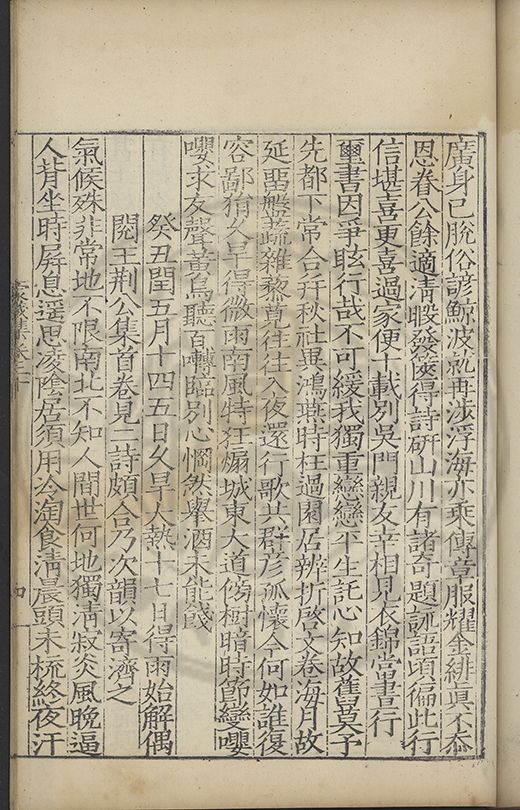 廣身已脫俗諺鯨波就再涉浮海亦乘傳章服耀金緋眞不忝
恩眷公餘適清暇發篋得詩硏山川有諸奇題詠語頃徧此行
信堪喜更喜過家便十載別吳門親友幸相見衣錦宮晝行
璽書因爭眩行哉不可緩我獨重戀戀平生託心知故舊莫予
先都下常合幷秋社異鴻燕時枉過閑居辨折啓文卷海月故
延畱盤蔬雜藜莧往往入夜還行歌共群彥孤懷今何如誰復
容鄙狷久旱得微雨南風特狂煽城東大道傍樹暗時節變嚶
嚶求友聲黃鳥聽百囀臨別心惘然擧酒未能餞
癸丑閏五月十四五日久旱人熱十七日得雨始解偶
閱王荆公集首卷見二詩頗合乃次韻以寄濟之
氣候殊非常地不限南北不知人間世何地獨淸寂炎風晚逼
人背坐時屛息遥思凌陰居須用冷淘食淸晨頭未梳終夜汗
家藏集卷二十